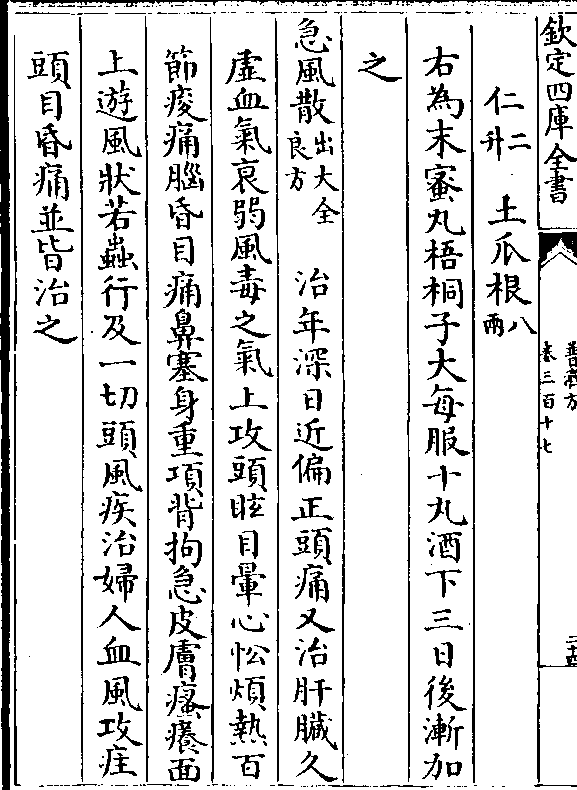 欽定四庫全書
普濟方
卷三百十七
仁二升 土瓜根八兩
右為末蜜丸梧桐子大每服十丸酒下三日後漸加
之
急風散出大全良方 治年深日近偏正頭痛又治肝臟久
虛血氣衰弱風毒之氣上攻頭眩目暈心忪煩熱百
節痠痛腦昏目痛鼻塞身重項背拘急皮膚瘙癢面
上遊風狀若蟲行及一切頭風疾治婦人血風攻疰
頭目昏痛並皆治之